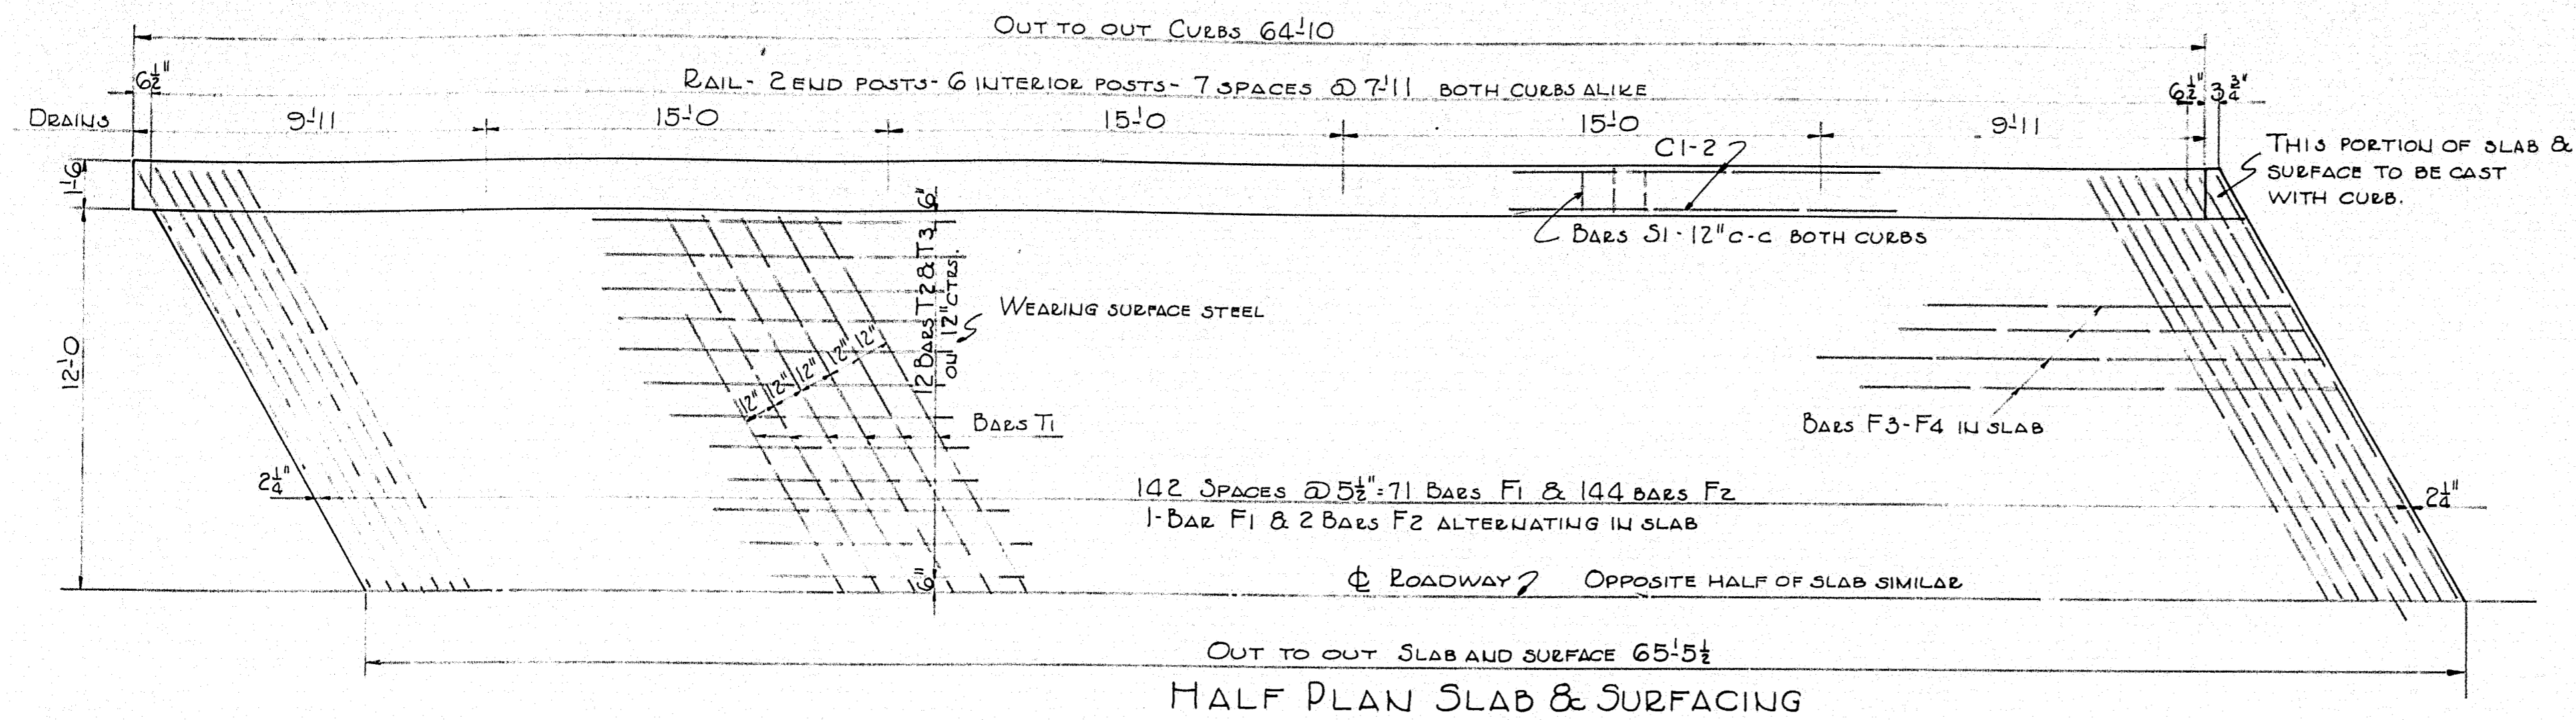 OUT TO OUT CURBS 64'-10
RAIL - 2 END POSTS - 6 INTERIOR POSTS - 7 SPACES @ 7'-11 BOTH CURBS ALIKE
6½"
6½" 3¾"
DRAINS
9'-11
15'-0
15'-0
15'-0
9'-11
THIS PORTION OF SLAB &
SURFACE TO BE CAST
WITH CURB.
C1-2
1'-6
6"
BARS S1 - 12" C-C BOTH CURBS
12 BARS T2 & T3
ON 12" CTRS.
WEARING SURFACE STEEL
12'-0
12" 12" 12" 12" 12"
BARS T1
BARS F3-F4 IN SLAB
2¼"
142 SPACES @ 5½" = 71 BARS F1 & 144 BARS F2
1-BAR F1 & 2 BARS F2 ALTERNATING IN SLAB
2¼"
6"
℄ ROADWAY
OPPOSITE HALF OF SLAB SIMILAR
OUT TO OUT SLAB AND SURFACE 65'-5½
HALF PLAN SLAB & SURFACING